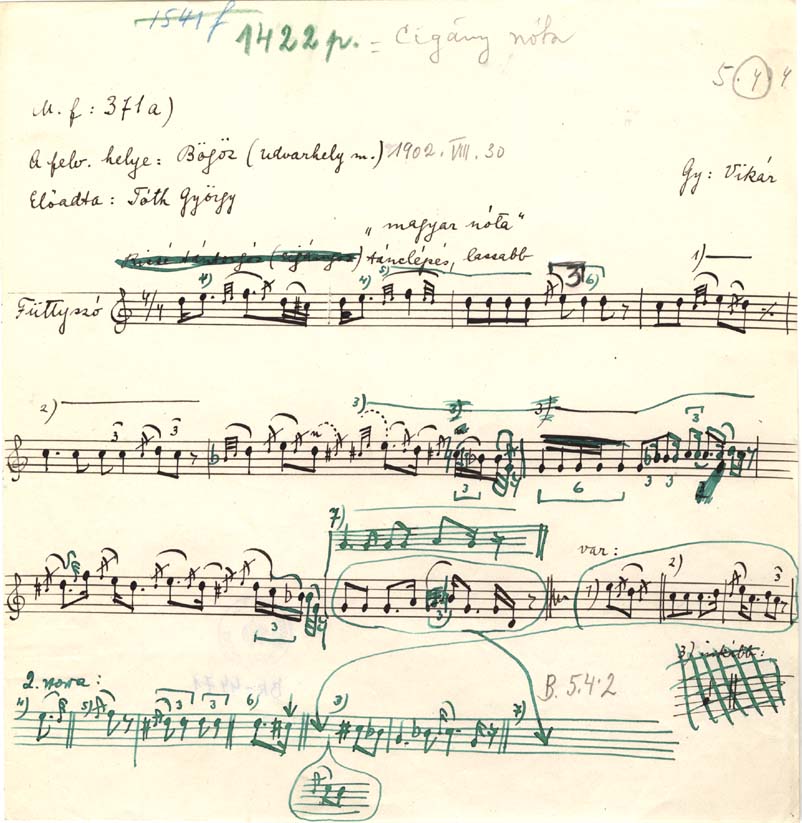 1541 f
1422 p. = Cigány nóta
5.4.4
M. f: 371a)
A felv. helye: Bögöz (Udvarhely m.) 1902. VIII. 30
Gy: Vikár
Előadta: Tóth György
„magyar nóta"
tánclépés, lassabb
4) 4) 5) 3 6) 1)
Füttyszó 4/4
2) 3 3 3) 3) 3)
3 6 3 3 3
7)
var:
1) 2) 3
3 3
3)
2. vers:
B. 5.4.2
4) 5) 3 3 6) 3) 7)